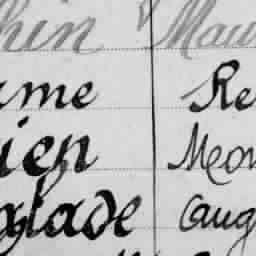 hin Mau
ume Re
ien Meon
glade Caug